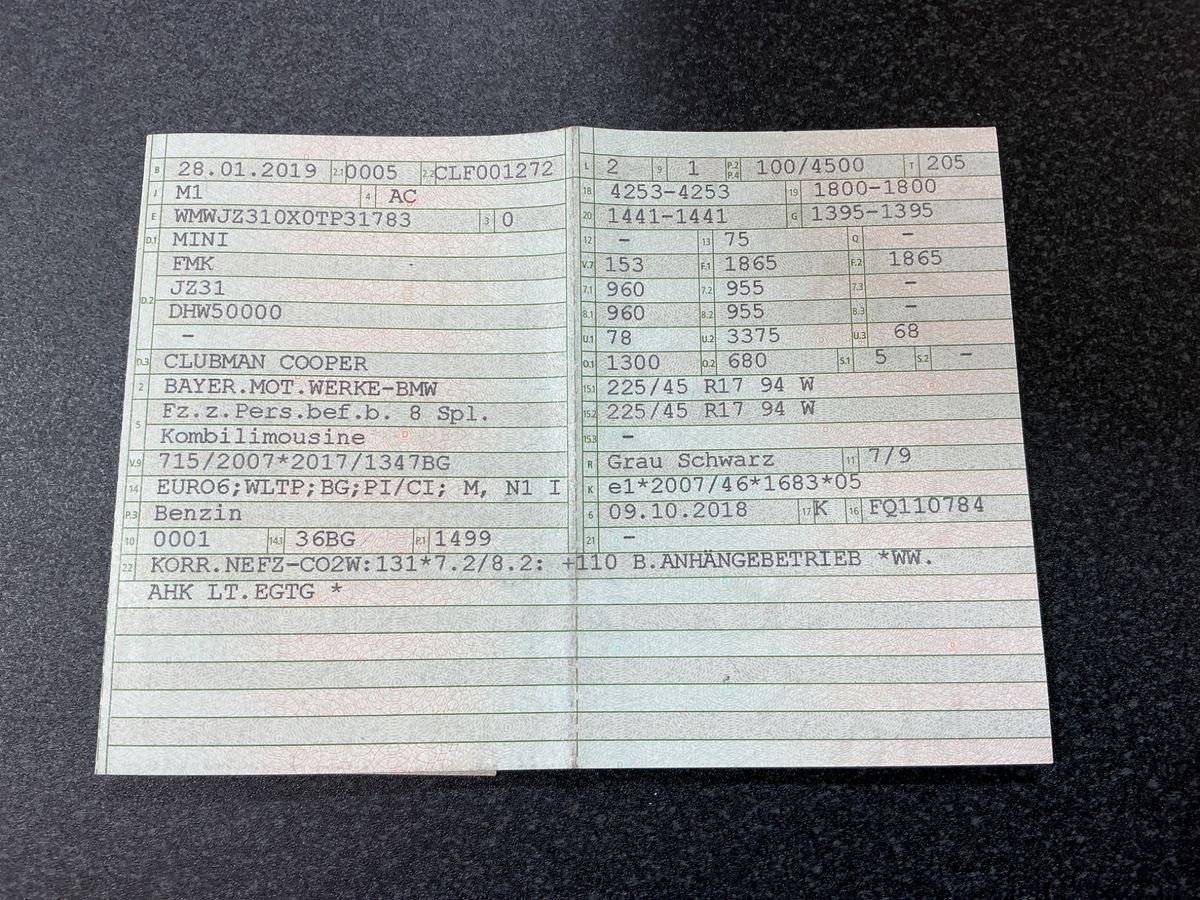 B 28.01.2019 2.1 0005 2.2 CLF001272
J M1 4 AC
E WMWJZ310X0TP31783 3 0
D.1 MINI
FMK
JZ31
D.2 DHW50000
–
D.3 CLUBMAN COOPER
2 BAYER.MOT.WERKE-BMW
Fz.z.Pers.bef.b. 8 Spl.
5 Kombilimousine
V.9 715/2007*2017/1347BG
14 EURO6;WLTP;BG;PI/CI; M, N1 I
P.3 Benzin
10 0001 14.1 36BG P.1 1499
L 2 9 1 P.2 P.4 100/4500 T 205
18 4253-4253 19 1800-1800
20 1441-1441 G 1395-1395
12 – 13 75 Q –
V.7 153 F.1 1865 F.2 1865
7.1 960 7.2 955 7.3 –
8.1 960 8.2 955 8.3 –
U.1 78 U.2 3375 U.3 68
O.1 1300 O.2 680 S.1 5 S.2 –
15.1 225/45 R17 94 W
15.2 225/45 R17 94 W
15.3 –
R Grau Schwarz 11 7/9
K e1*2007/46*1683*05
6 09.10.2018 17 K 16 FQ110784
21 –
22 KORR.NEFZ-CO2W:131*7.2/8.2: +110 B.ANHÄNGEBETRIEB *WW.
AHK LT.EGTG *